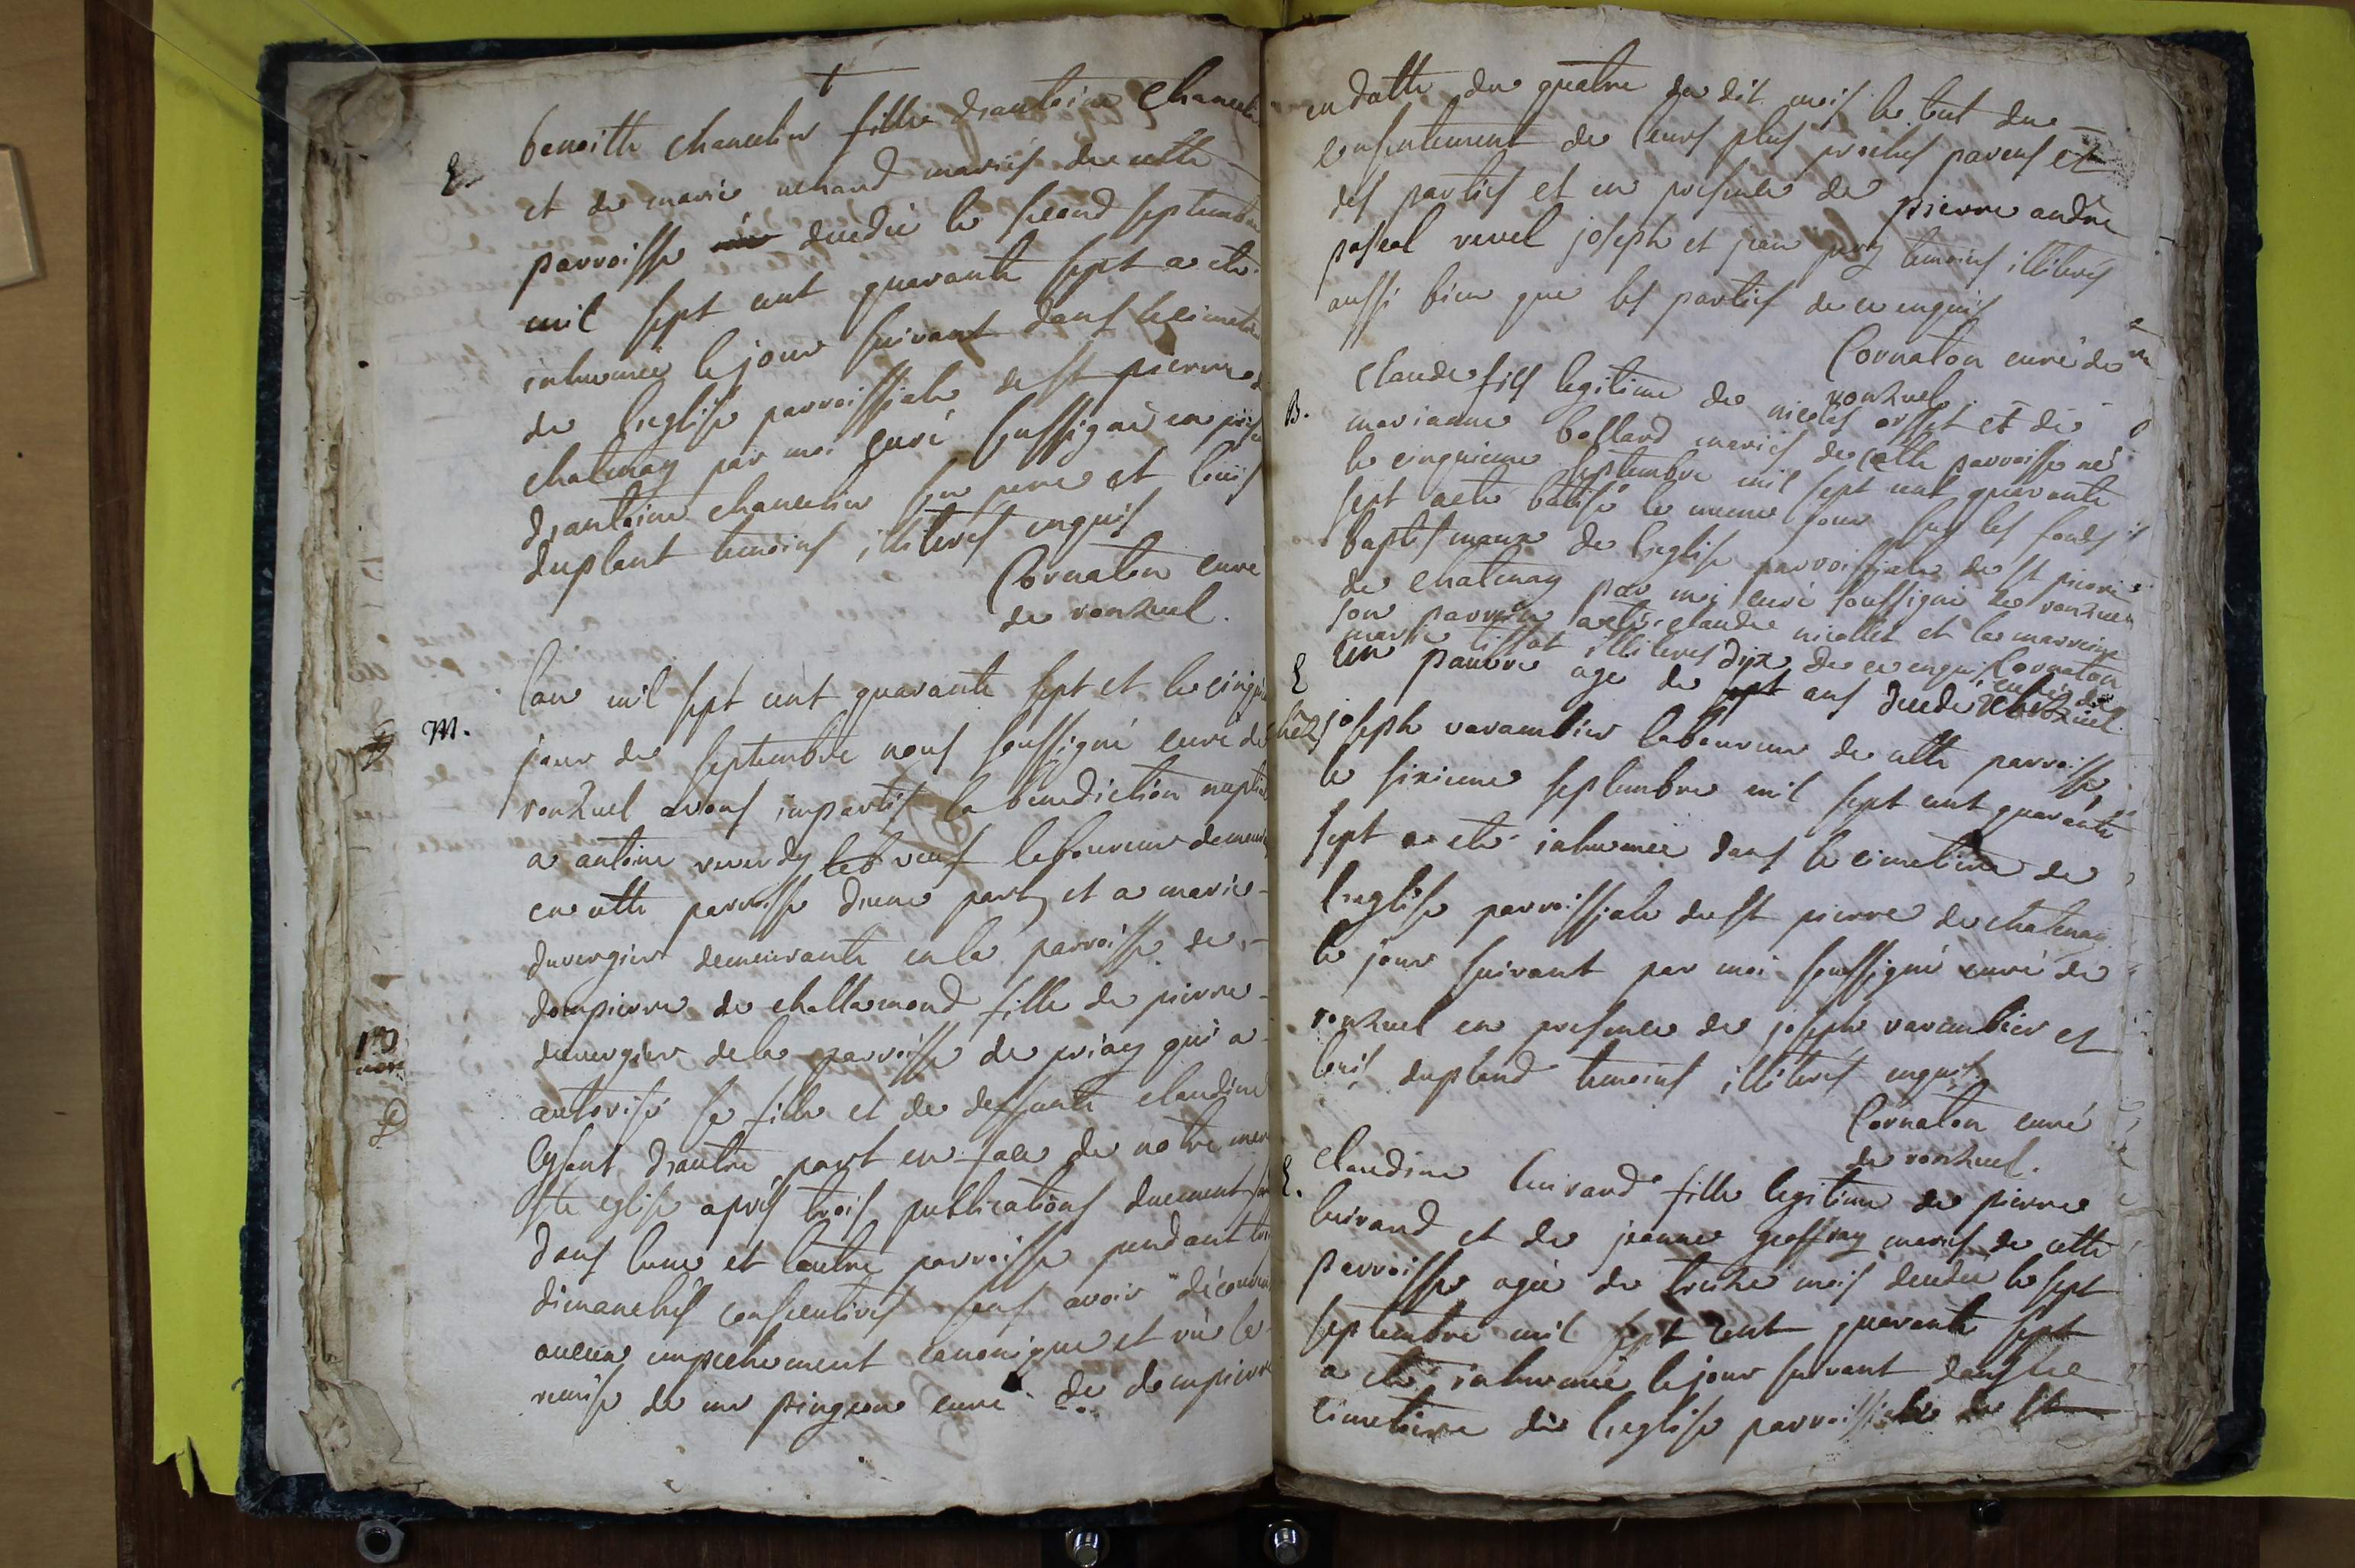 E
benoitte chancelier fille d'antoine chanceli
et de marie uchard mariés de cette
parroisse decedée le second septembre
mil sept cent quarante sept a eté
inhumée le jour suivant dans le cimetie
de l'eglise parroissiale de st pierre de
chatenay par moi curé soussigné en prese
d'antoine chancelier son pere et louis
duplent temoins illiterés enquis
Cornaton curé
de ronzuel.
M.
l'an mil sept cent quarante sept et le cinqui
jour de septembre nous soussigné curé de
ronzuel avons impartis la benediction nuptial
a antoine reverdy veuf laboureur demeur
en cette parroisse d'une part, et a marie
duvergier demeurante en la parroisse de
dompierre de challamond fille de pierre
duvergier de la parroisse de priay qui a
autorisé sa fille et de deffunte claudine
d'autre part en face de notre mere
ste eglise après trois publications duement
dans l'une et l'autre parroisse pendant tro
dimanches consecutives sans avoir découver
aucun empechement canonique et vu la
remise de mr pingeon curé de dompierre
en datte du quatre du dit mois le tout du
consentement de leurs plus proches parens et
des parties et en presence de pierre andré
pascal revel joseph et jean temoins illiterés
aussi bien que les parties de ce enquis
Cornaton curé de
ronzuel.
B.
Claude fils legitime de nicolas orset et de
marianne bollard mariés de cette parroisse né
le cinquieme septembre mil sept cent quarante
sept a eté batisé le meme jour sur les fonds
baptismaux de l'eglise parroissiale de st pierre
de chatenay par moi curé soussigné de ronzuel
son parrein a eté claude nicollet et la marreine
marie tissot illiterés de ce enquis Cornaton
curé de
ronzuel.
E
un pauvre agé de dix ans decedé chez
joseph varambier laboureur de cette parroisse
le sixieme septembre mil sept cent quarante
sept a eté inhumée dans le cimetiere de
l'eglise parroissiale de st pierre de chatenay
le jour suivant par moi soussigné curé de
ronzuel en presence de joseph varambier et
louis duplend temoins illiterés enquis
Cornaton curé
de ronzuel.
E.
claudine luirand fille legitime de pierre
luirand et de jeanne geoffray mariés de cette
parroisse agée de treize mois decedée le sept
septembre mil sept cent quarante sept
a eté inhumée le jour suivant dans le
cimetiere de l'eglise parroissiale de st